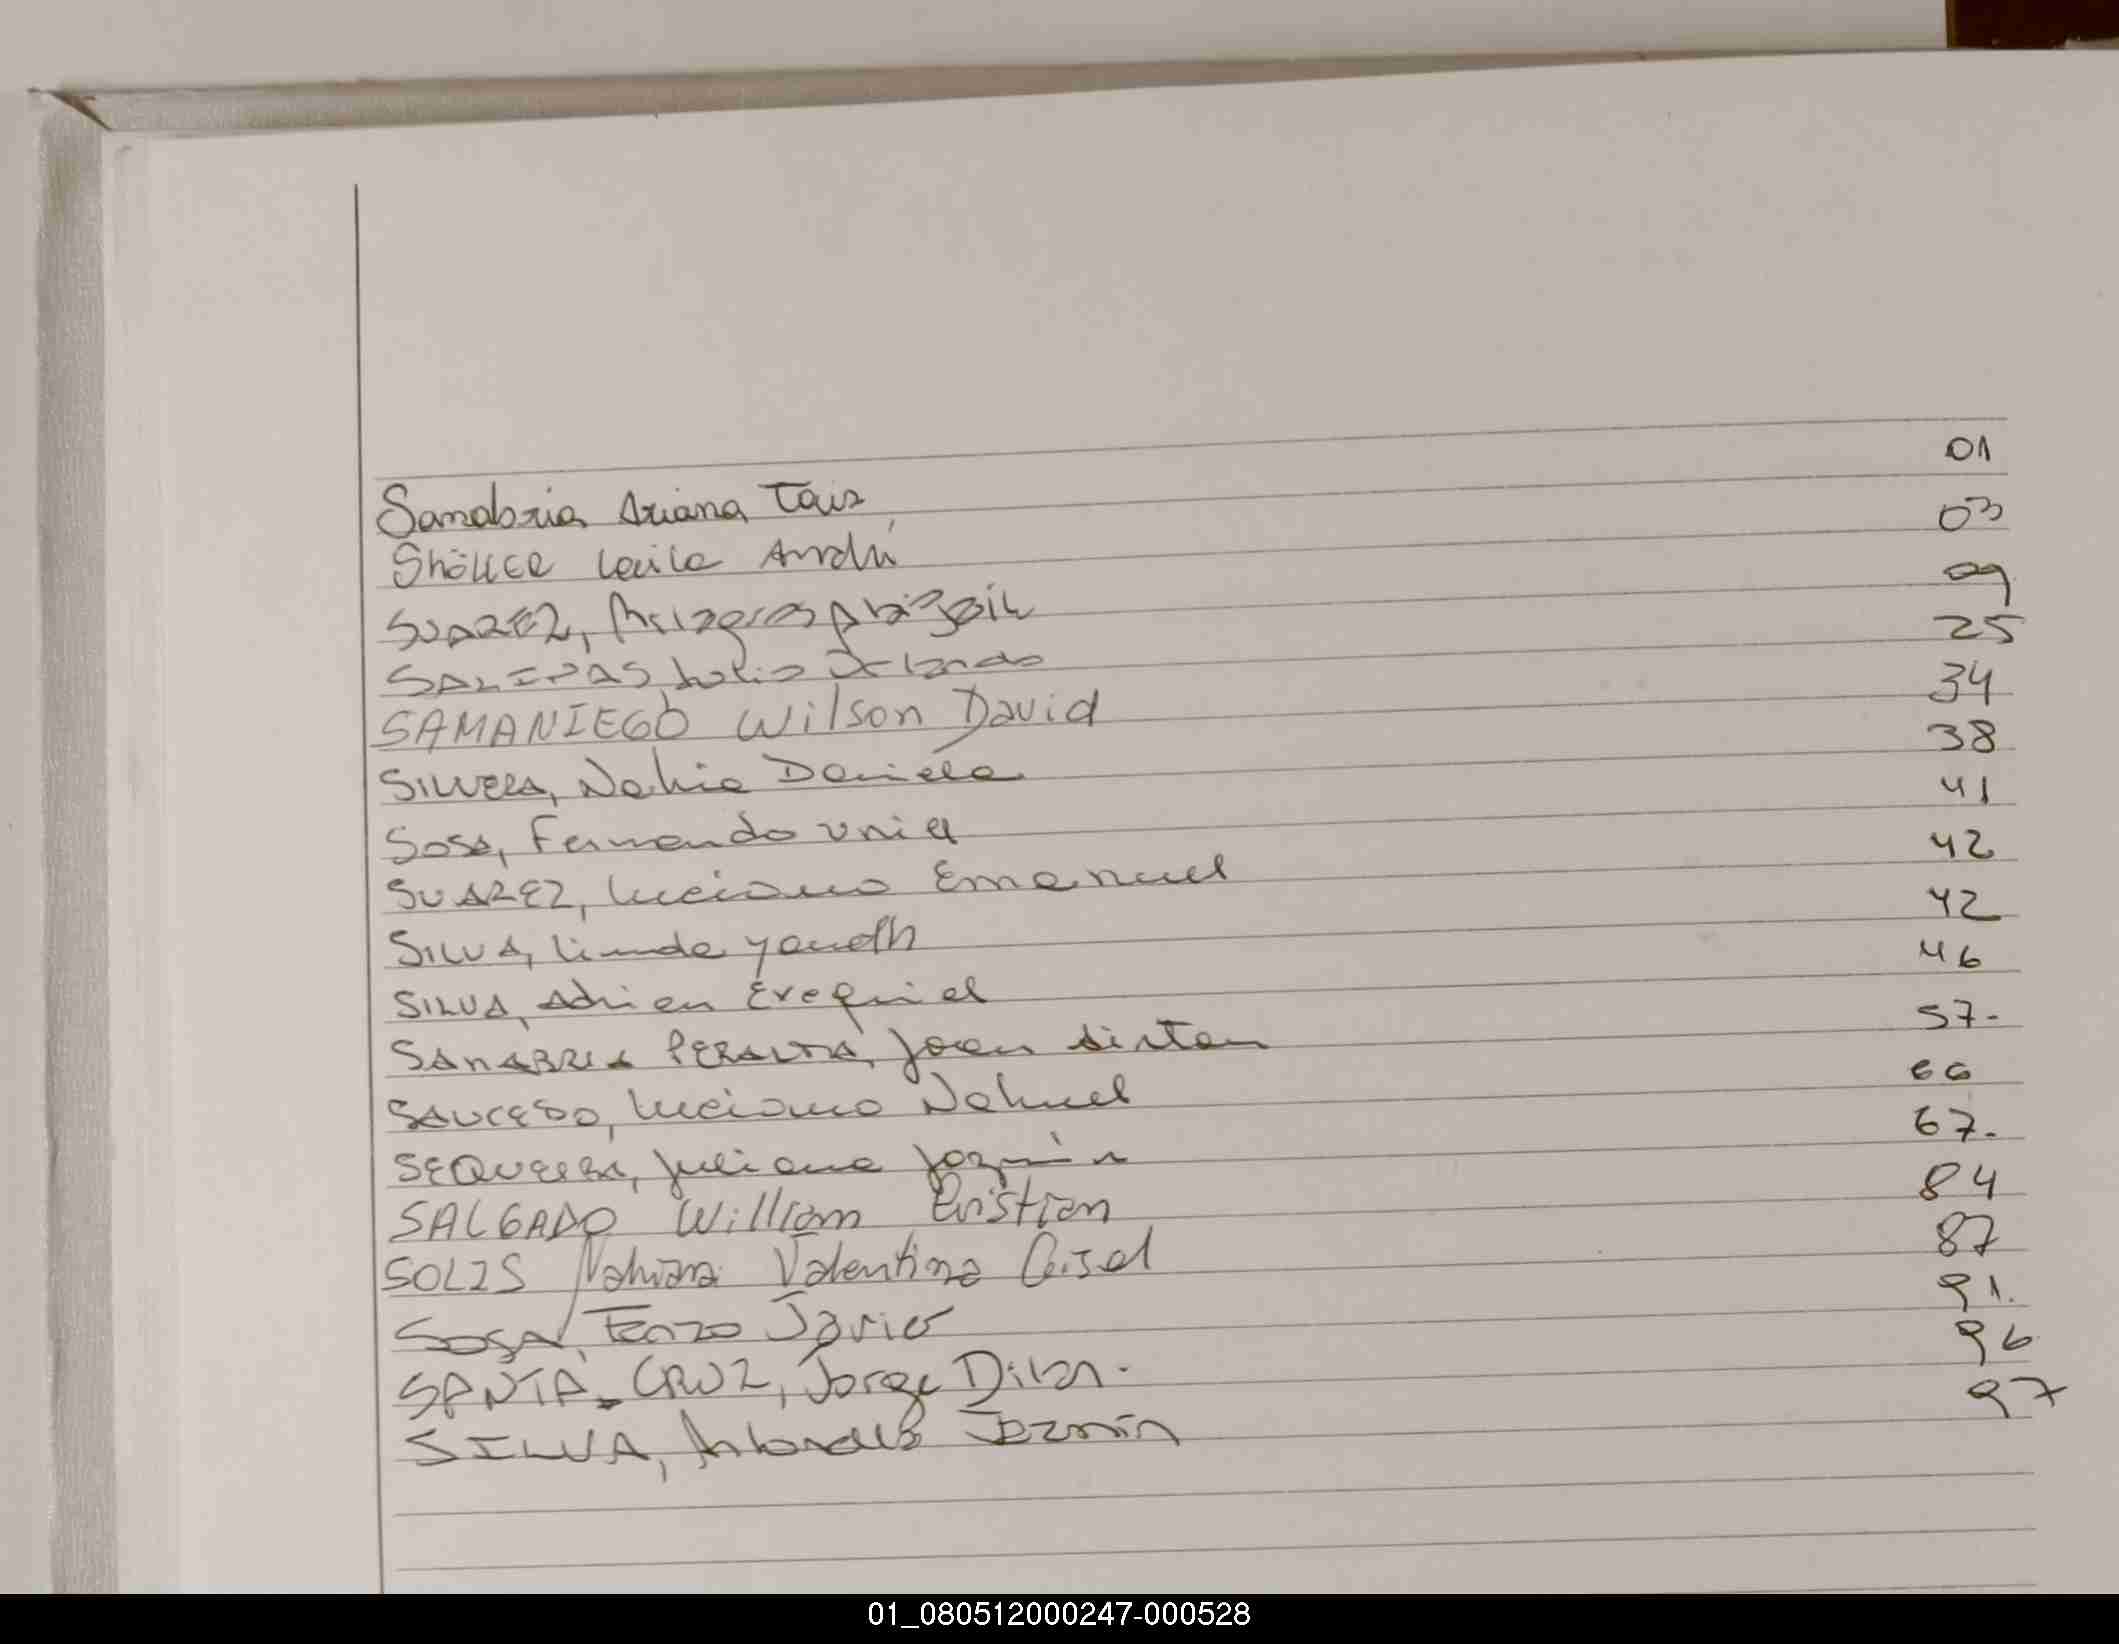 Sanabria Ariana Tais 01
Shölice Leila Andrú 03
SUAREZ, Milagros Abigail 09
SALINAS, Julio Orlando 25
SAMANIEGO Wilson David 34
SILVERA, Nahia Daniela 38
SOSA, Fernando Uriel 41
SUAREZ, Luciano Emanuel 42
SILVA, Linda Yaneth 42
SILVA, Adrien Exequiel 46
SANABRIA PERALTA, Joan 57-
SAUCEDO, Luciano Nahuel 66
SEQUEIRA, Juliana Jazmín 67-
SALGADO William Cristian 84
SOLIS Nahiara Valentina Gisel 87
SOSA, Enzo Javier 91.
SANTA-CRUZ, Jorge Dilan. 96
SILVA, Jazmín 97
01_080512000247-000528